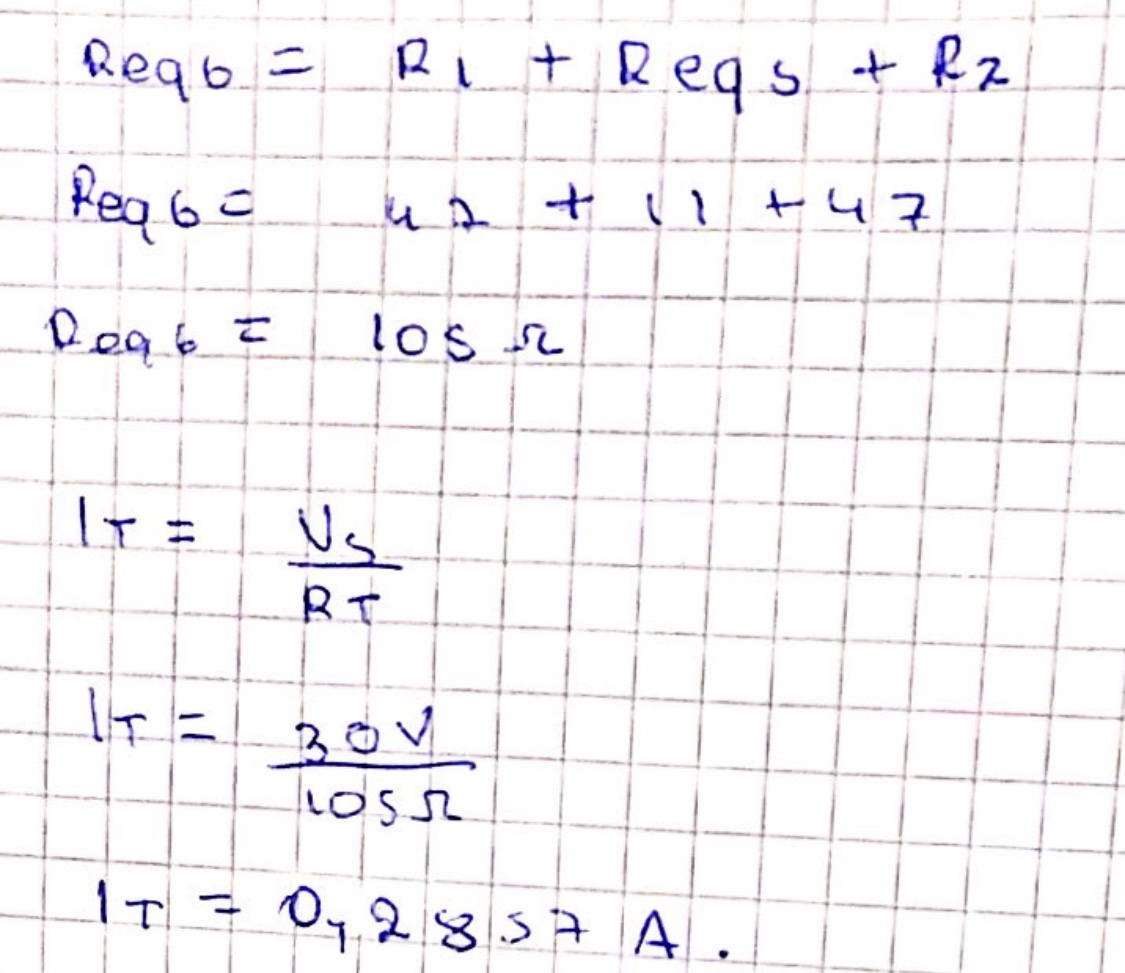 Req6 = R1 + Req5 + R2
Req6 = 47 + 11 + 47
Req6 = 105 Ω
IT = Vs / RT
IT = 30V / 105Ω
IT = 0,2857 A.